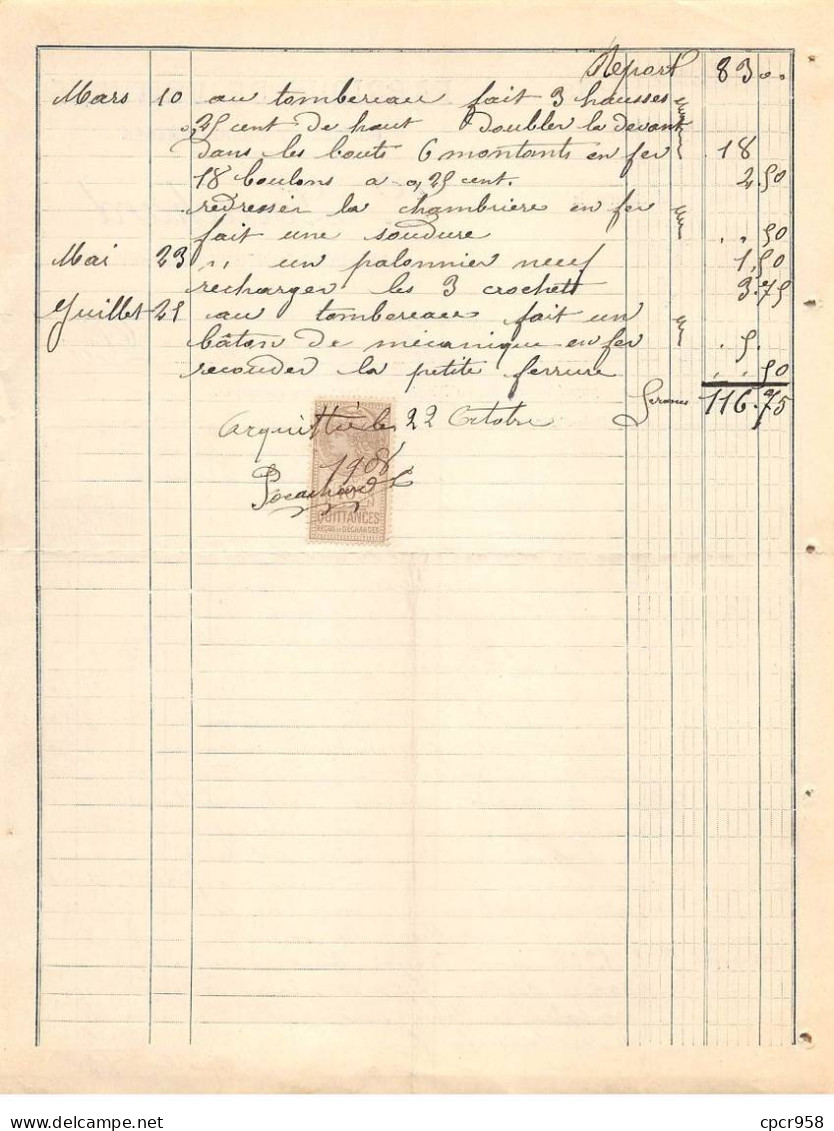 Report 83 00
Mars 10 au tombereau fait 3 hausses
0,25 cent de haut Doubler la devant
dans les bouts 6 montants en fer 18
18 boulons a 0,25 cent. 2.50
redresser la chambriere en fer
fait une soudure . . 50
Mai 23 " un palonnier neuf 1,50
recharger les 3 crochets 3.75
Juillet 25 au tombereau fait un
bâton de mécanique en fer . 5 .
recouder la petite ferrure . . 50
francs 116.75
Acquitté le 22 Octobre
1908
QUITTANCES
REÇUS ET DÉCHARGES
cpcr958